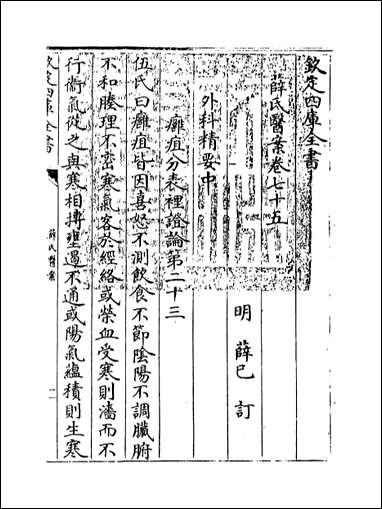 欽定四庫全書
薛氏醫案卷七十五
明 薛已 訂
外科精要中
癰疽分表裡證論第二十三
伍氏曰癰疽皆因喜怒不測飲食不節陰陽不調臟腑
不和腠理不宻寒氣客於經絡或榮血受寒則濇而不
行衛氣從之與寒相搏壅遏不通或陽氣蘊積則生寒
欽定四庫全書
薛氏醫案